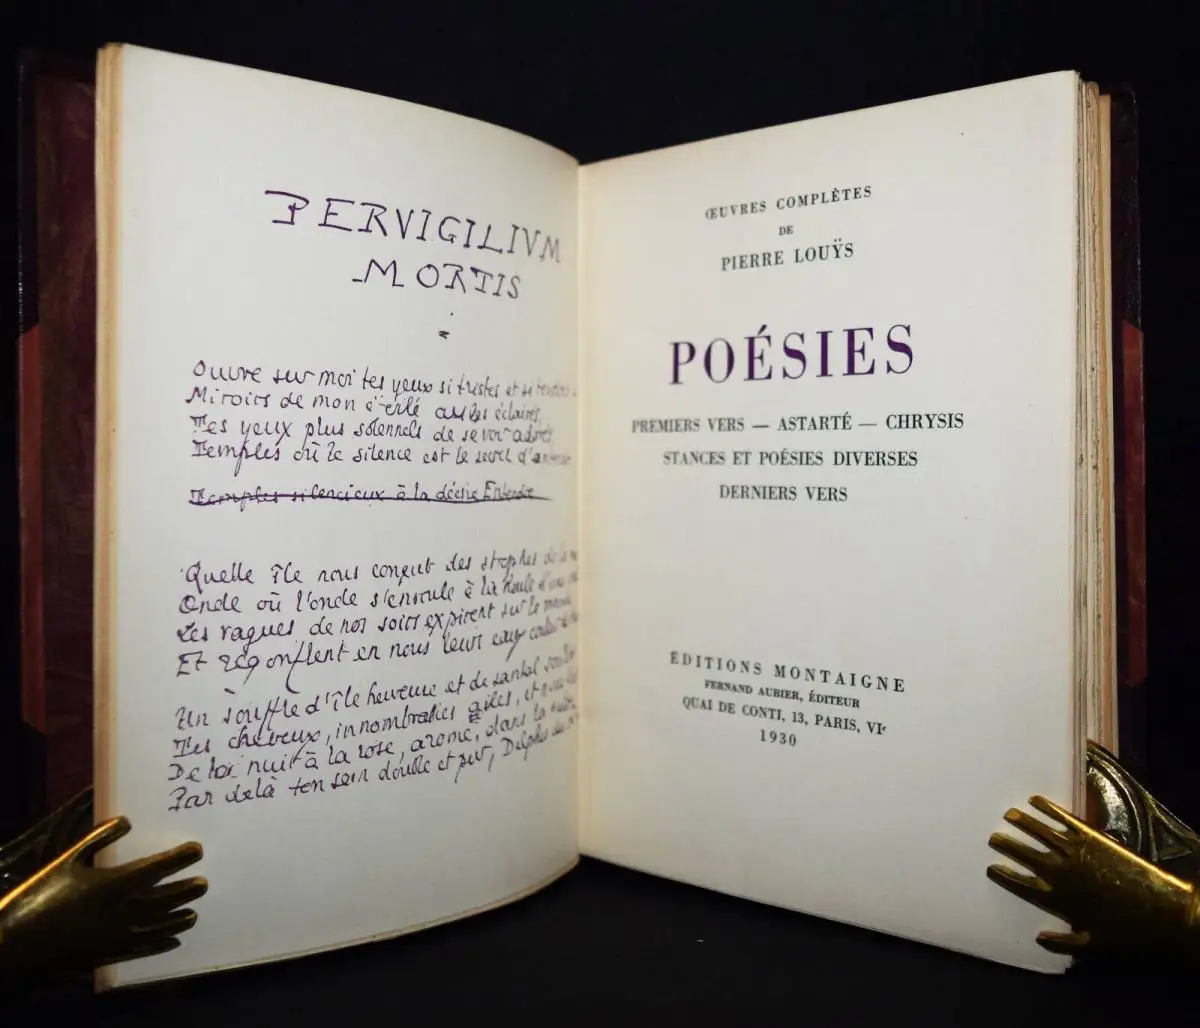 PERVIGILIVM
MORTIS
Ouvre sur moi tes yeux si tristes et si tendres
Miroirs de mon étoile asiles éclairés,
Tes yeux plus solennels de se voir adorés,
Temples où le silence est le secret d'entendre
Temples silencieux à la désie Entendre
Quelle île nous conçut des strophes de la
Onde où l'onde s'enroule à la houle d'une
Les vagues de nos soirs expirent sur le monde
Et regonflent en nous leurs eaux couleur de
Un souffle d'île heureuse et de santal soulève
Tes cheveux, innombrables ailes, et nous
De la nuit à la rose, arome, dans la
Par delà ton sein double et pur, Delphes du
ŒUVRES COMPLÈTES
DE
PIERRE LOUŸS
POÉSIES
PREMIERS VERS — ASTARTÉ — CHRYSIS
STANCES ET POÉSIES DIVERSES
DERNIERS VERS
ÉDITIONS MONTAIGNE
FERNAND AUBIER, ÉDITEUR
QUAI DE CONTI, 13, PARIS, VIe
1930